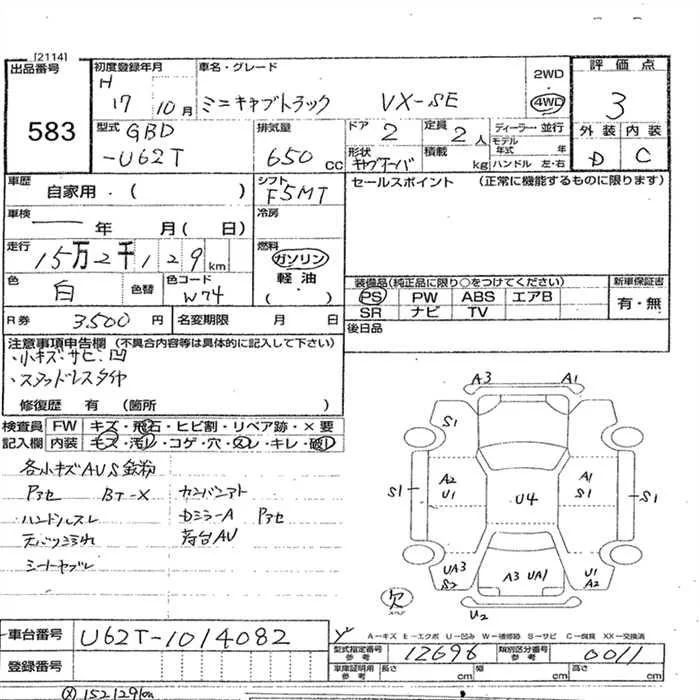 [2114]
出品番号
583
初度登録年月
H
17 10月
車名・グレード
ミニキャブトラック VX-SE
2WD
4WD
評価点
3
外装 内装
D C
型式 GBD
-U62T
排気量
650 cc
ドア 2
定員 2人
形状
積載 kg
ディーラー・並行
モデル年式 年
ハンドル 左・右
車歴
自家用・( )
シフト
F5MT
セールスポイント (正常に機能するものに限ります)
車検 年 月( 日)
冷房
走行 15万2千129km
燃料
ガソリン
軽油
( )
色 白
色替
色コード
W74
装備品(純正品に限り○をつけてください)
PS PW ABS エアB
SR ナビ TV
新車保証書
有・無
R券 3,500円
名変期限 月 日
後日品
注意事項申告欄 (不具合内容等は具体的に記入して下さい)
・小キズ・サビ・凹
・スタッドレスタイヤ
修復歴 有 (箇所 )
検査員 FW キズ・飛石・ヒビ割・リペア跡・×要
記入欄 内装 キズ・汚レ・コゲ・穴・スレ・キレ・破レ
各小キズAUS鉄粉
アセ BT-X
ハンドルスレ
Dミラー A アセ
荷台AU
シートヤブレ
A3 A1
S1
A2 U1
A1 S1
S1 S1
U4
UA3 S2
A3 UA1
U1 A2
欠
U2
A-キズ E-エクボ U-凹み W-補修跡 S-サビ C-腐蝕 XX-交換済
車台番号 U62T-1014082
登録番号
型式指定番号 参考 12696
類別区分番号 参考 0011
車庫証明用 参考 長さ cm 幅 cm 高さ cm
152129km